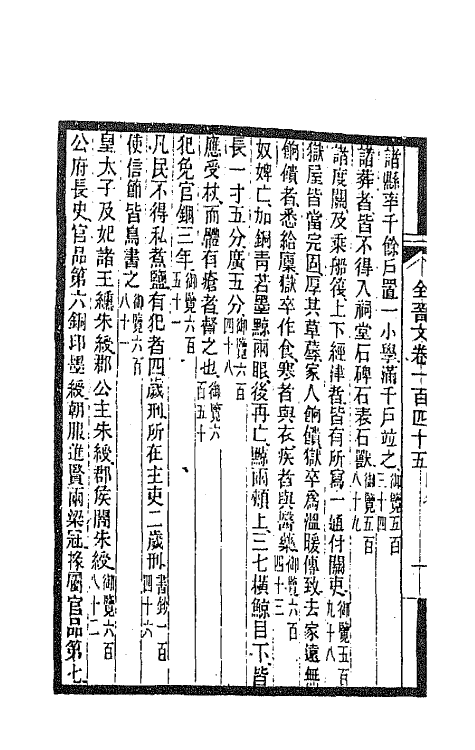 全晉文卷一百四十五
諸縣率千餘戶置一小學滿千戶竝之御覽五百三十四
諸葬者皆不得入祠堂石碑石表石獸御覽五百八十九
諸度關及乘船筏上下經津者皆有所寫一通付關吏御覽五百九十八
獄屋皆當完固厚其草蓐家人餉饋獄卒爲溫暖傳致去家遠無
餉饋者悉給廩獄卒作食寒者與衣疾者與醫藥御覽六百四十三
奴婢亡加銅青若墨黥兩眼後再亡黥兩頰上三七橫黥目下皆
長一寸五分廣五分御覽六百四十八
應受杖而體有瘡者督之也御覽六百五十
犯免官錮三年御覽六百五十一
凡民不得私煮鹽有犯者四歲刑所在主吏二歲刑書鈔一百四十六
使信節皆鳥書之御覽六百八十一
皇太子及妃諸王纁朱綬郡公主朱綬郡侯閣朱綬御覽六百八十二
公府長史官品第六銅印墨綬朝服進賢兩梁冠掾屬官品第七